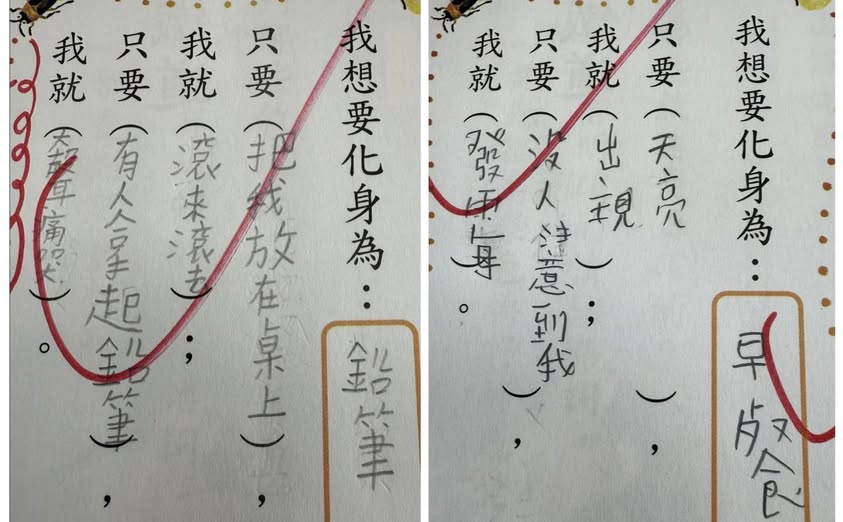 我想要化身為：鉛筆
只要（把我放在桌上），
我就（滾來滾去）；
只要（有人拿起鉛筆），
我就（大聲痛哭）。
我想要化身為：早餐
只要（天亮），
我就（出現）；
只要（沒人注意到我），
我就（發霉）。